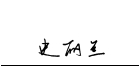 史丽兰